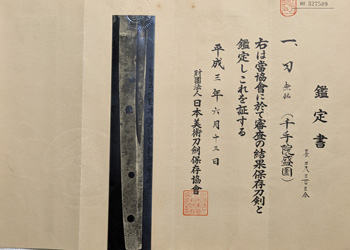 鑑定書
一、刀 無銘(千手院盛國)
右は當協會に於て審査の結果保存刀剣と
鑑定しこれを証する
平成三年六月十三日
財團法人 日本美術刀剣保存協會